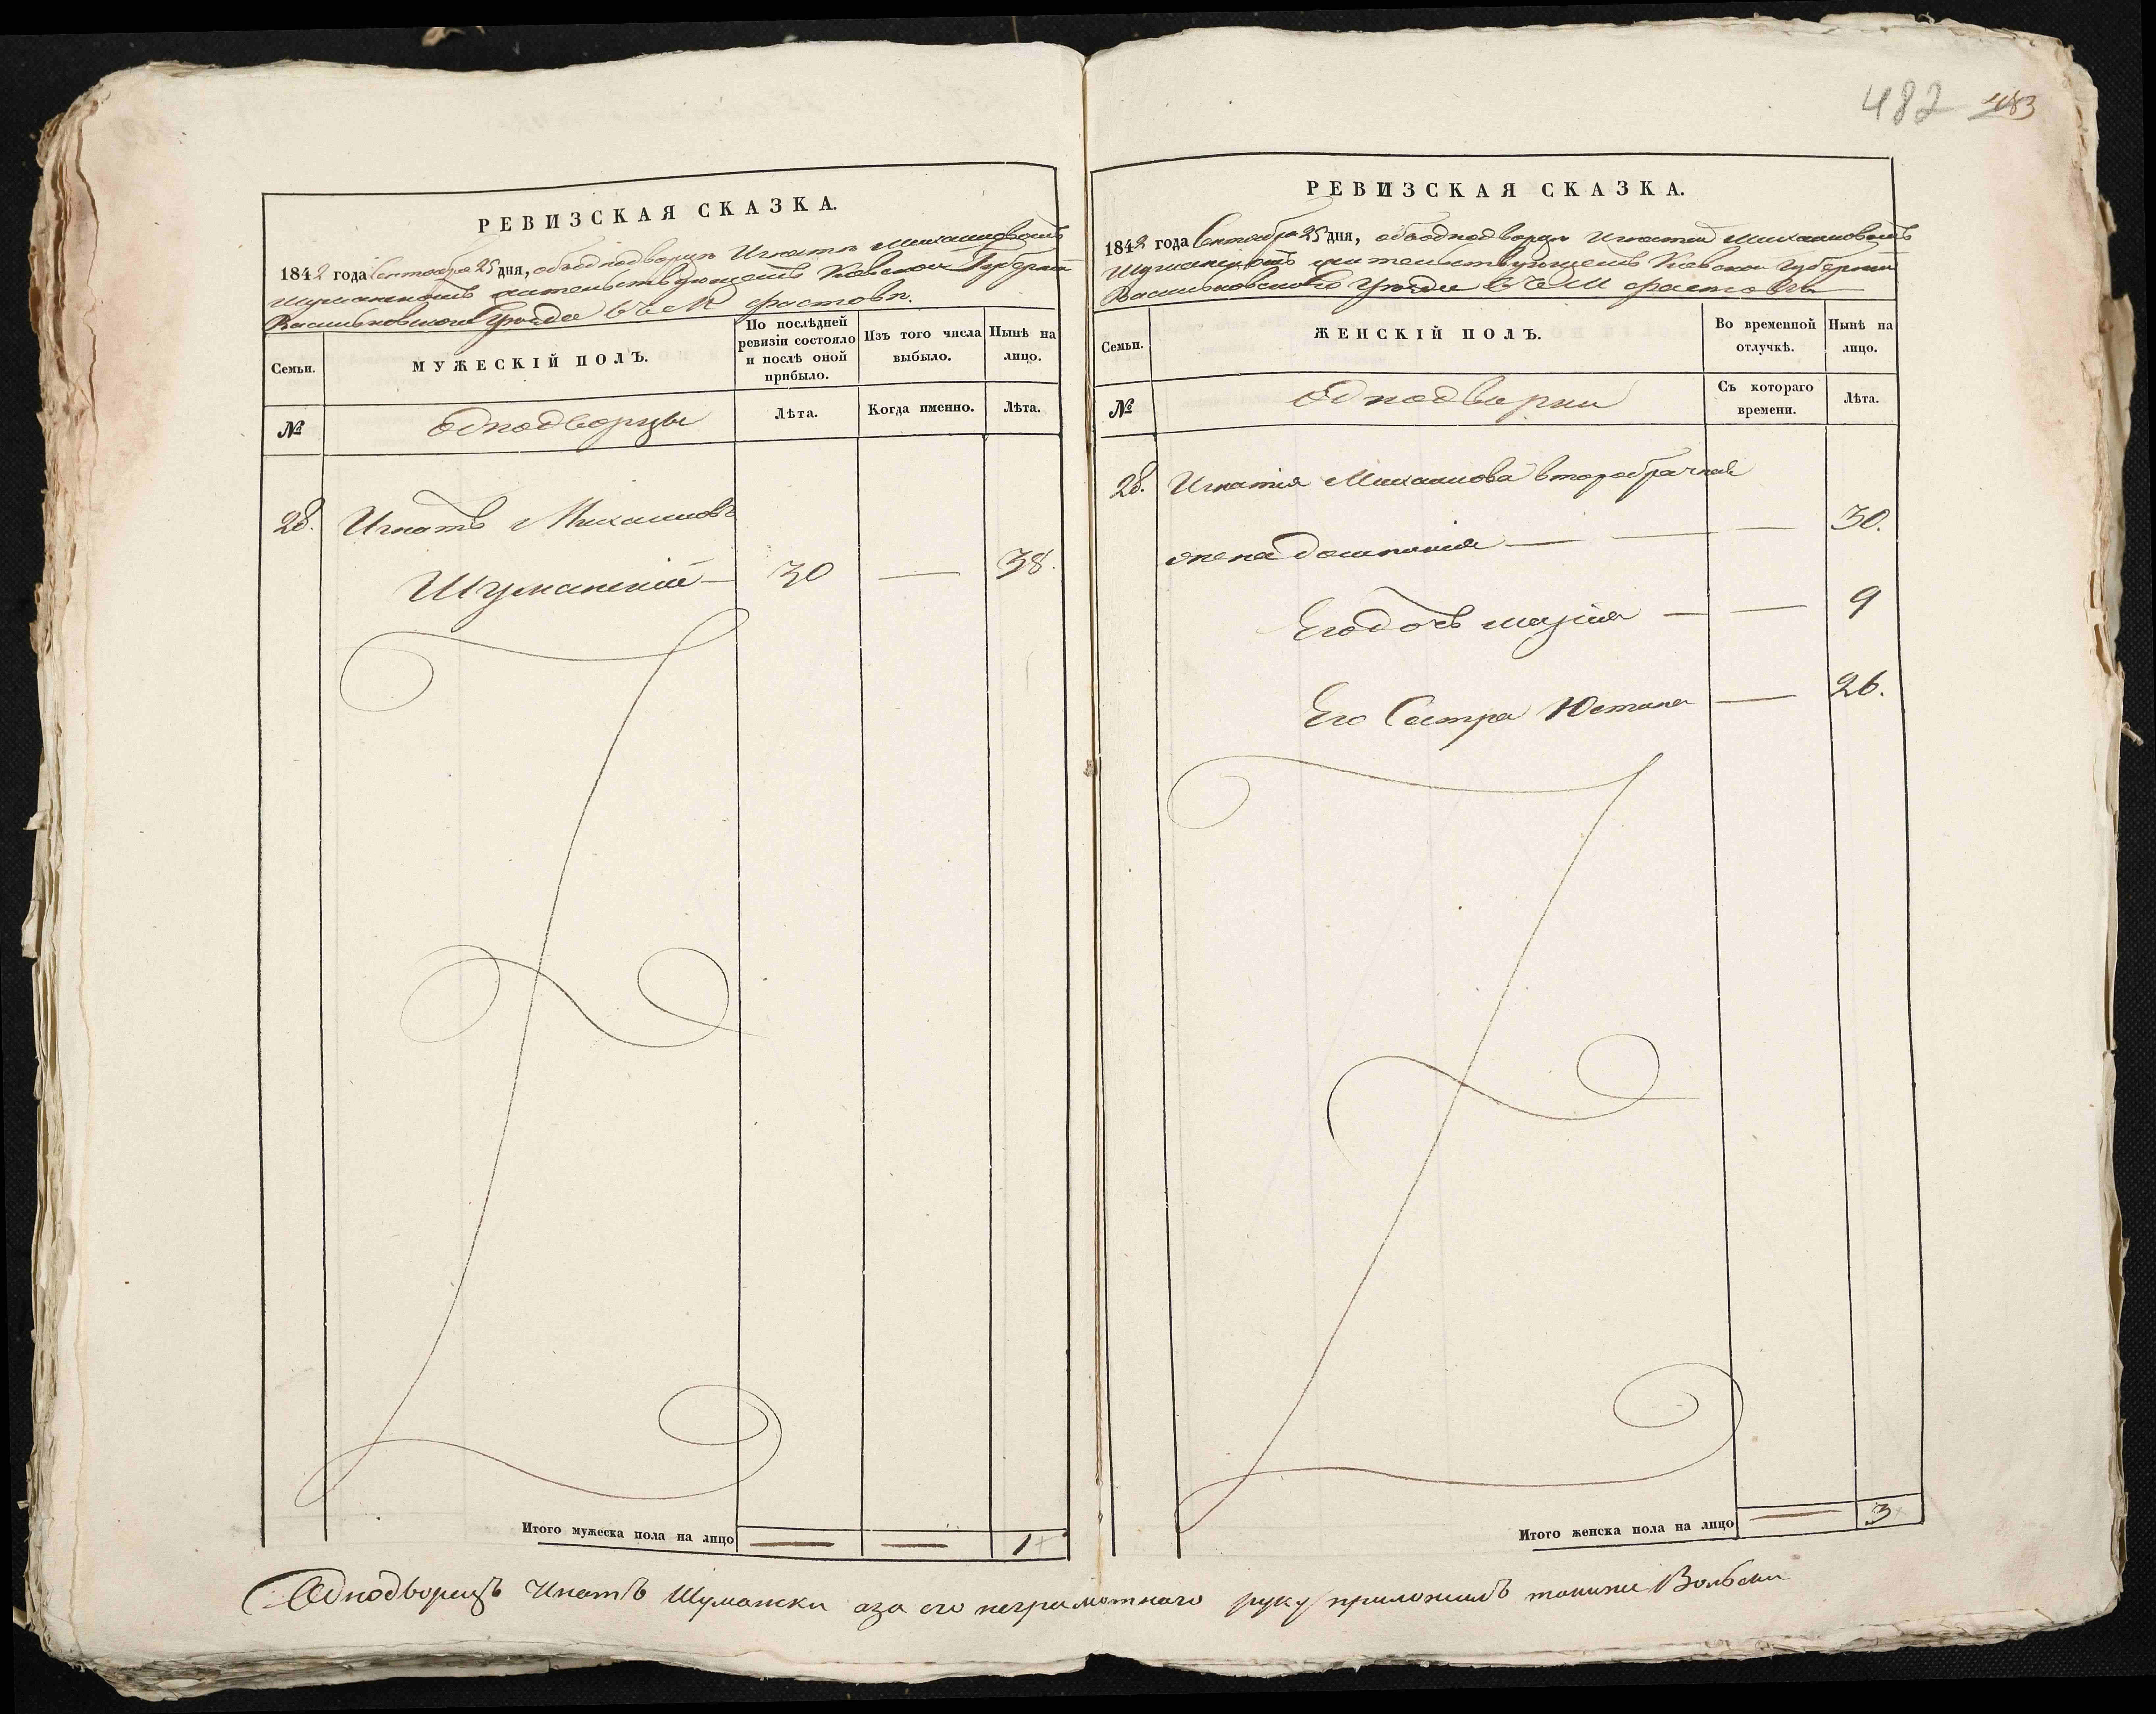 482 483
РЕВИЗСКАЯ СКАЗКА.
1842 года Сентября 25 дня, объ однодворцѣ Игнатѣ Михайловомъ
Шуманскомъ жительствующемъ Кіевской Губерніи
Васильковскаго Уѣзда въ М Фастовѣ.
Семьи.
МУЖЕСКІЙ ПОЛЪ.
По послѣдней ревизіи состояло и послѣ оной прибыло.
Изъ того числа выбыло.
Нынѣ на лицо.
№
однодворцы
Лѣта.
Когда именно.
Лѣта.
28. Игнатъ Михайловъ
Шуманскій — 30 — 38.
Итого мужеска пола на лицо — — 1
РЕВИЗСКАЯ СКАЗКА.
1842 года Сентября 25 дня, объ однодворцѣ Игнатіи Михайловомъ
Шуманскомъ жительствующемъ Кіевской Губерніи
Васильковскаго Уѣзда въ М Фастовѣ
Семьи.
ЖЕНСКІЙ ПОЛЪ.
Во временной отлучкѣ.
Нынѣ на лицо.
№
однодворки
Съ котораго времени.
Лѣта.
28. Игнатія Михайлова второбрачная
жена — — — 30.
Его дочь — — 9
Его Сестра Юстина — 26.
Итого женска пола на лицо — 3
Однодворецъ Игнатъ Шумански аза его неграмотнаго руку приложилъ